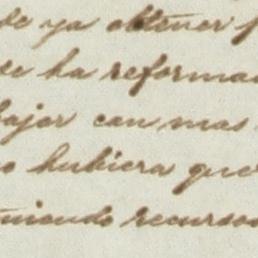 de ya obtener
de ha reforma
bajar can mas
hubiera que
niendo recursos